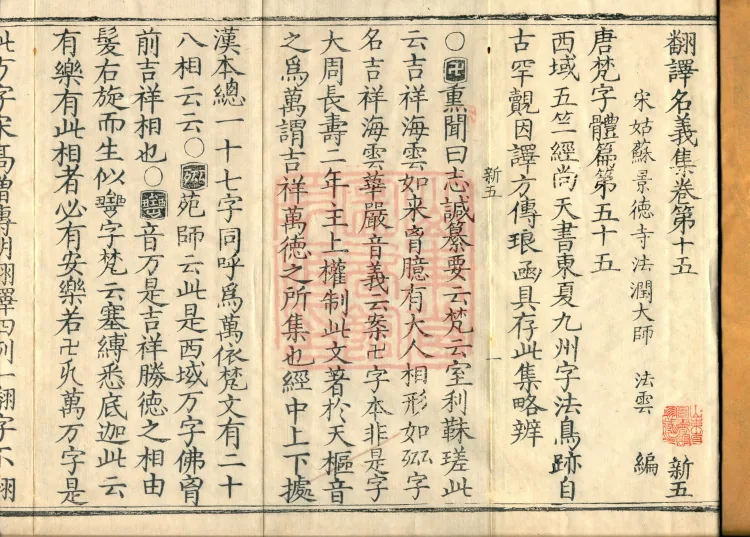 翻譯名義集卷第十五 新五
宋姑蘇景德寺法潤大師 法雲 編
唐梵字體篇第五十五
西域五竺經尚天書東夏九州字法鳥跡自
古罕覿因譯方傳琅函具存此集略辨
新五 一
〇卍熏聞曰志誠纂要云梵云室利靺瑳此
云吉祥海雲如来胷臆有大人相形如字
名吉祥海雲華嚴音義云案卍字本非是字
大周長壽二年主上權制此文著於天樞音
之為萬謂吉祥萬德之所集也經中上下據
漢本總一十七字同呼為萬依梵文有二十
八相云云〇苑師云此是西域万字佛胷
前吉祥相也〇音万是吉祥勝德之相由
髮右旋而生似字梵云塞縛悉底迦此云
有樂有此相者必有安樂若卍萬万字是
此万字宋高僧傳明翻譯四例一翻字不翻